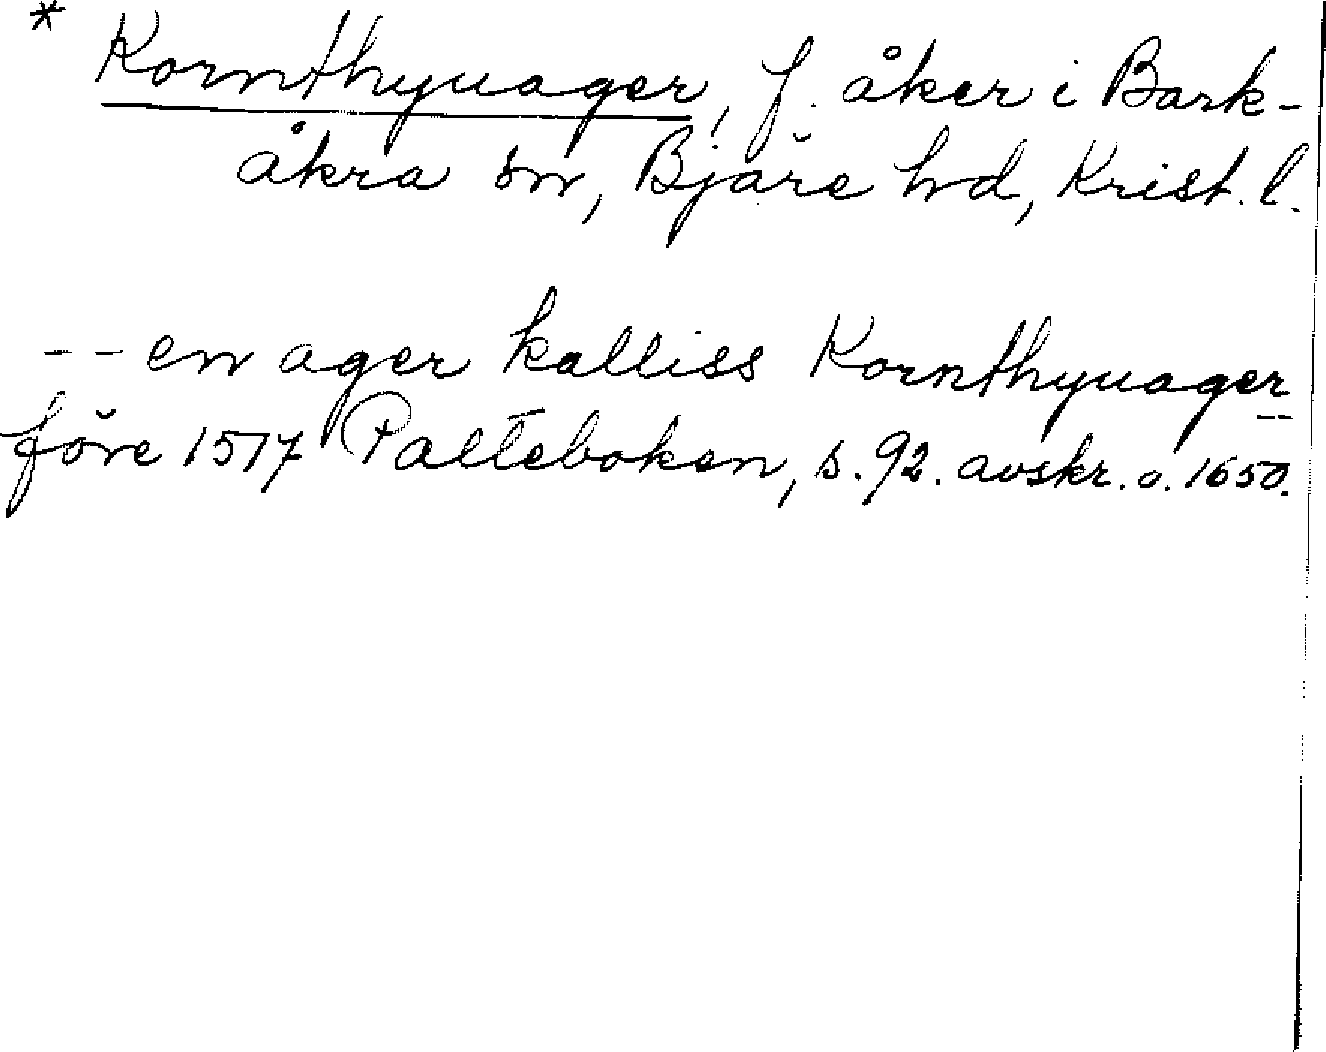 * Kornthyuager, f. åker i Bark-
åkra sn, Bjäre hd, Krist. l.
-- en ager kalliss Kornthyuager --
före 1517 Palteboken, s. 92. avskr. o. 1650.